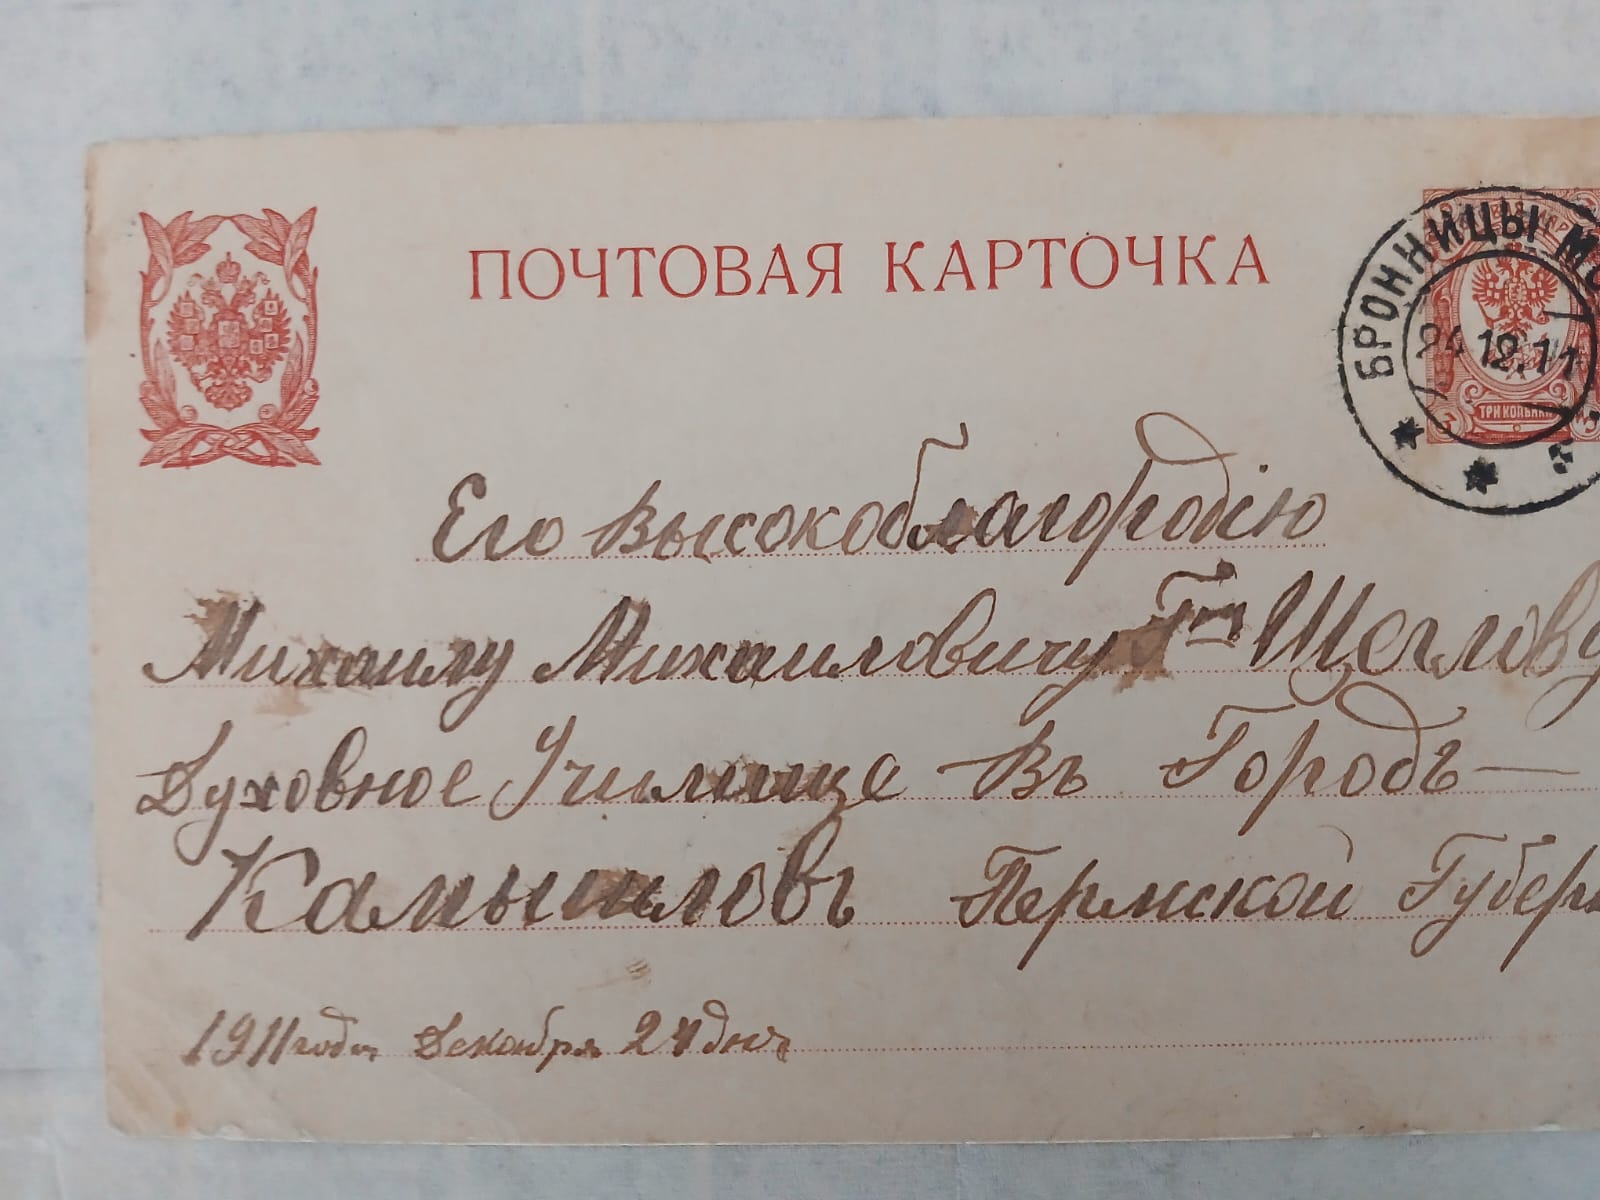 ПОЧТОВАЯ КАРТОЧКА
БРОННИЦЫ МО
24.12.11
ТРИ КОПѢЙКИ
3 3
Его Высокоблагородію
Михаилу Михаиловичу Гну Щеглову
Духовное Училище Въ Городъ—
Камышловъ Пермской Губер
1911 года Декабря 24 дня